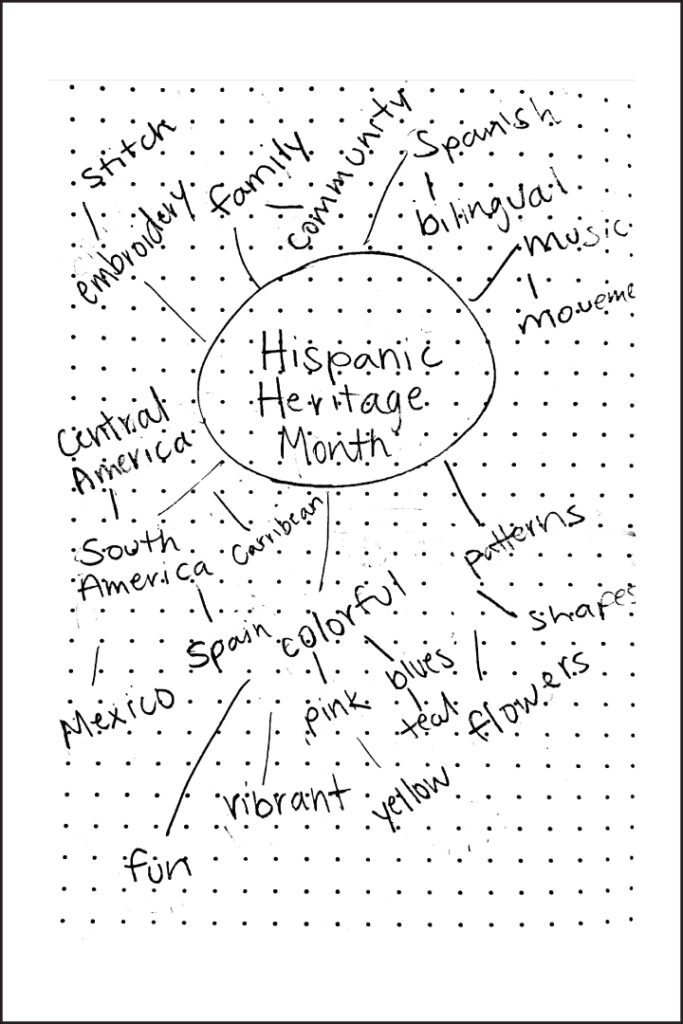 stitch
embroidery
family
community
Spanish
bilingual
music
moveme
Hispanic
Heritage
Month
Central
America
South
America
Carribean
Spain
Mexico
colorful
pink
blues
teal
yellow
vibrant
fun
patterns
shapes
flowers